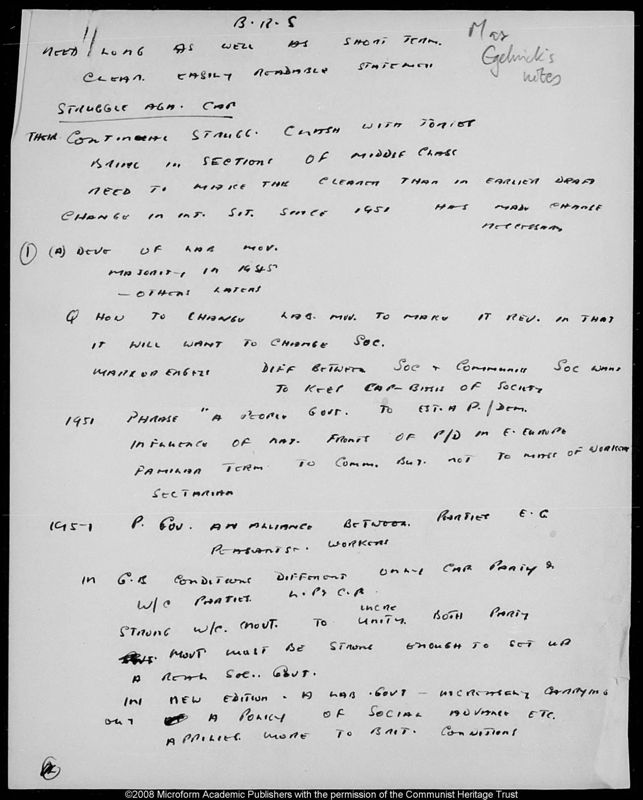 B-R-S
Mrs
Gelnick's
notes
NEED LONG AS WELL AS SHORT TERM.
CLEAR. EASILY READABLE STATEMEN
STRUGGLE AGA. CAP
THEIR CONTINUAL STRUGG. CLASH WITH TORIES
BRING IN SECTIONS OF MIDDLE CLASS
NEED TO MAKE THE CLEARER THAN IN EARLIER DRAFT
CHANGE IN INT. SIT. SINCE 1951 HAS MADE CHANGE
NECCESSARY
1 (A) DEVE OF LAB MOV.
MAJORITY IN 1945
— OTHERS LATER
Q HOW TO CHANGE LAB. MOV. TO MAKE IT REV. IN THAT
IT WILL WANT TO CHANGE SOC.
MARX OR ENGELS DIFF BETWEEN SOC + COMMUNIS SOC WANT
TO KEEP CAP-BASIS OF SOCIETY
1951 PHRASE "A PEOPLE GOVT. TO EST. A P./DEM.
INFLUENCE OF NAT. FRONTS OF P/D IN E. EUROPE
FAMILIAR TERM TO COMM. BUT. NOT TO MASS OF WORKERS
SECTARIAN
1951 P. GOV. AN ALLIANCE BETWEEN. PARTIES E.G
PEASANTS. WORKERS
IN G.B CONDITIONS DIFFERENT ONLY CAP PARTY &
W/C PARTIES. L.P & C.P.
STRONG W/C. MOVT. TO UNITY. BOTH PARTY
INCRE
MOVT MUST BE STRONG ENOUGH TO SET UP
A REAL SOC.. GOVT.
IN NEW EDITION. A LAB. GOVT — INCREASINGLY CARRYING
OUT A POLICY OF SOCIAL ADVANCE ETC.
APPLIES MORE TO BRIT. CONDITIONS
©2008 Microform Academic Publishers with the permission of the Communist Heritage Trust